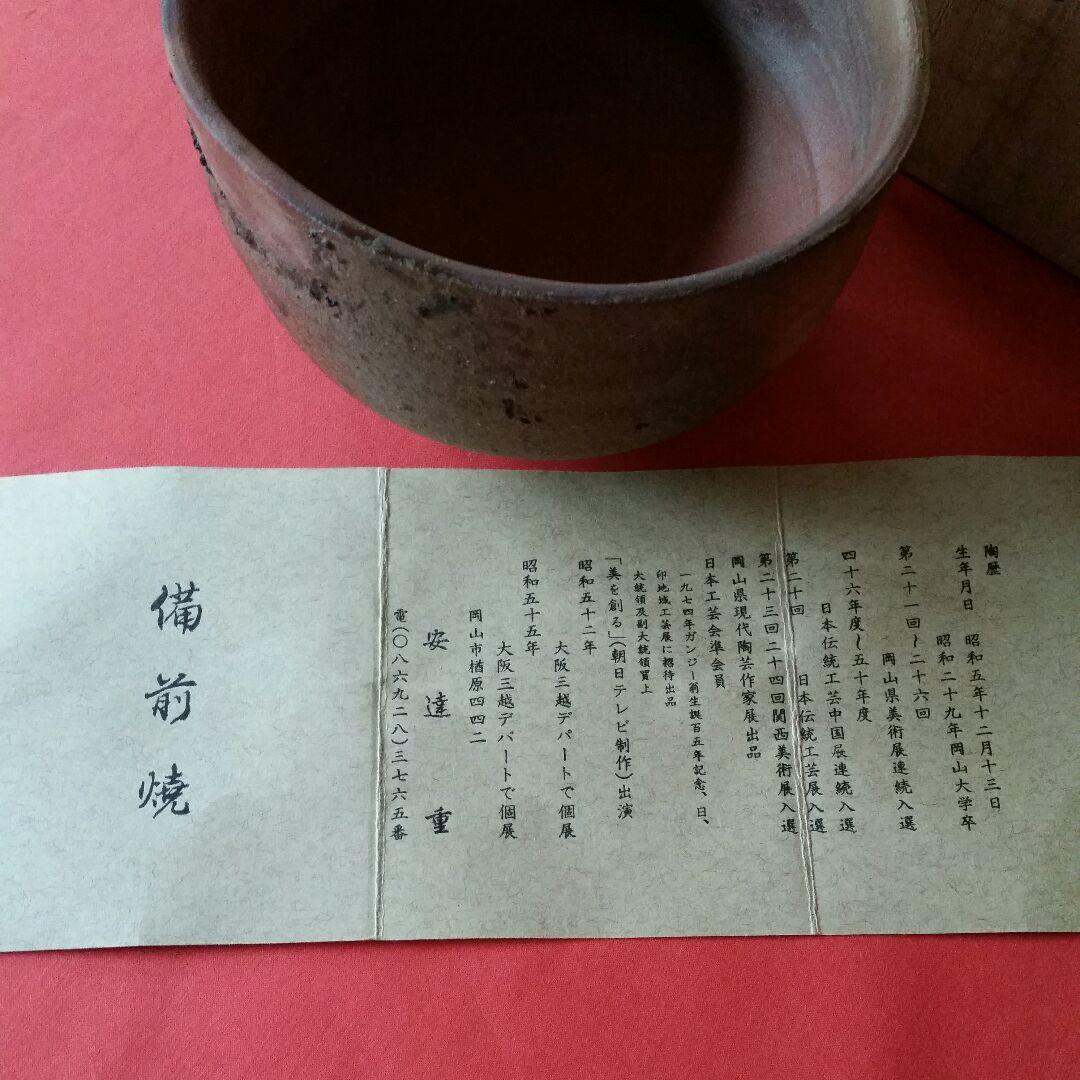 陶歴
生年月日　昭和五年十二月十三日
昭和二十九年岡山大学卒
第二十一回〜二十六回
岡山県美術展連続入選
四十六年度〜五十年度
日本伝統工芸中国展連続入選
第二十回　日本伝統工芸展入選
第二十三回二十四回関西美術展入選
岡山県現代陶芸作家展出品
日本工芸会準会員
一九七四年ガンジー翁生誕百五年記念、日、
印地域工芸展に招待出品
大統領及副大統領買上
「美を創る」(朝日テレビ制作)出演
昭和五十二年
大阪三越デパートで個展
昭和五十五年
大阪三越デパートで個展
岡山市楢原四四二
安達重
電(〇八六九二八)三七六五番
備前焼